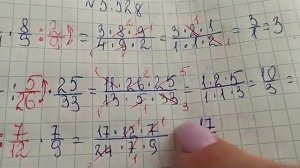 № 928
: 8/9 : 2/9 = 3·8·9/4·9·2 = 3·8·1/1·1·2 = 3/1 = 3
: 5/26 · 25/33 = 11·26·25/13·5·33 = 1·2·5/1·1·3 = 10/3 =
= 7/12 · 7/9 = 17·12·7/24·7·9 = 17